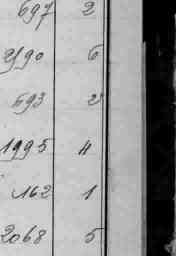 697 2
2190 6
693 2
1995 4
162 1
2068 5